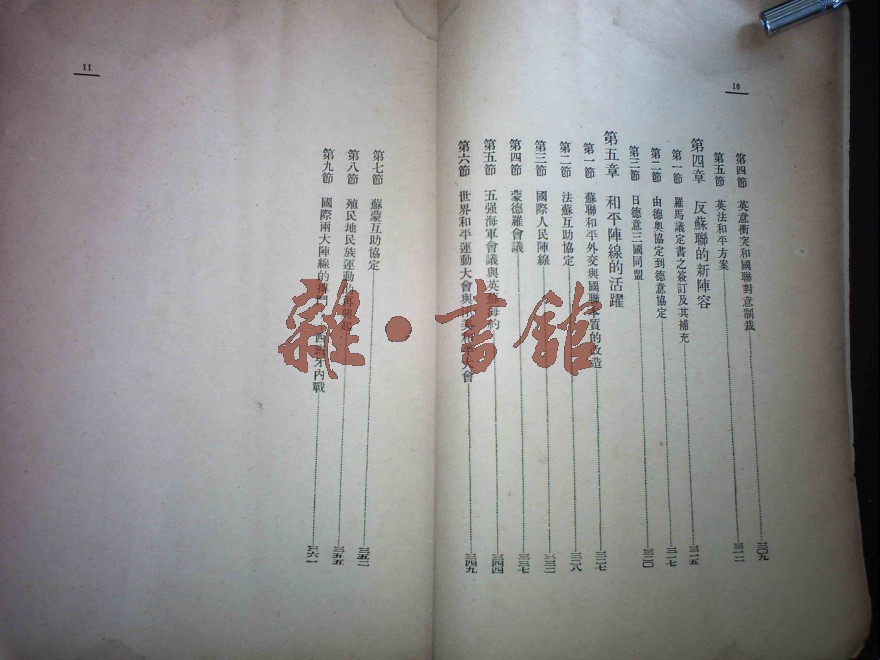 10
第四節 英意衝突和國聯對意制裁 三〇九
第五節 英法和平方案 三一二
第四章 反蘇聯的新陣容 三一五
第一節 羅馬議定書之簽訂及其補充 三一七
第二節 由德奧協定到德意協定
第三節 日德意三國同盟 三二〇
第五章 和平陣線的活躍
第一節 蘇聯和平外交與國聯本質的改造 三二七
第二節 法蘇互助協定 三二八
第三節 國際人民陣線 三三二
第四節 蒙德羅會議 三三七
第五節 五强海軍會議與英蘇海約 三四四
第六節 世界和平運動大會與 大會 三四九
11
第七節 蘇蒙互助協定 三五二
第八節 殖民地民族運動的再 三五五
第九節 國際兩大陣線的 牙內戰 三六一
雜·書館